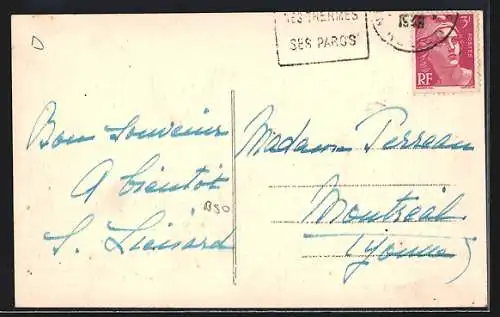 SES THERMES
SES PARCS
1948
3F
POSTES
RF
Bon souvenir
A bientôt
S. Liénard
B50
Madame Perreau
Montréal
(Yonne)